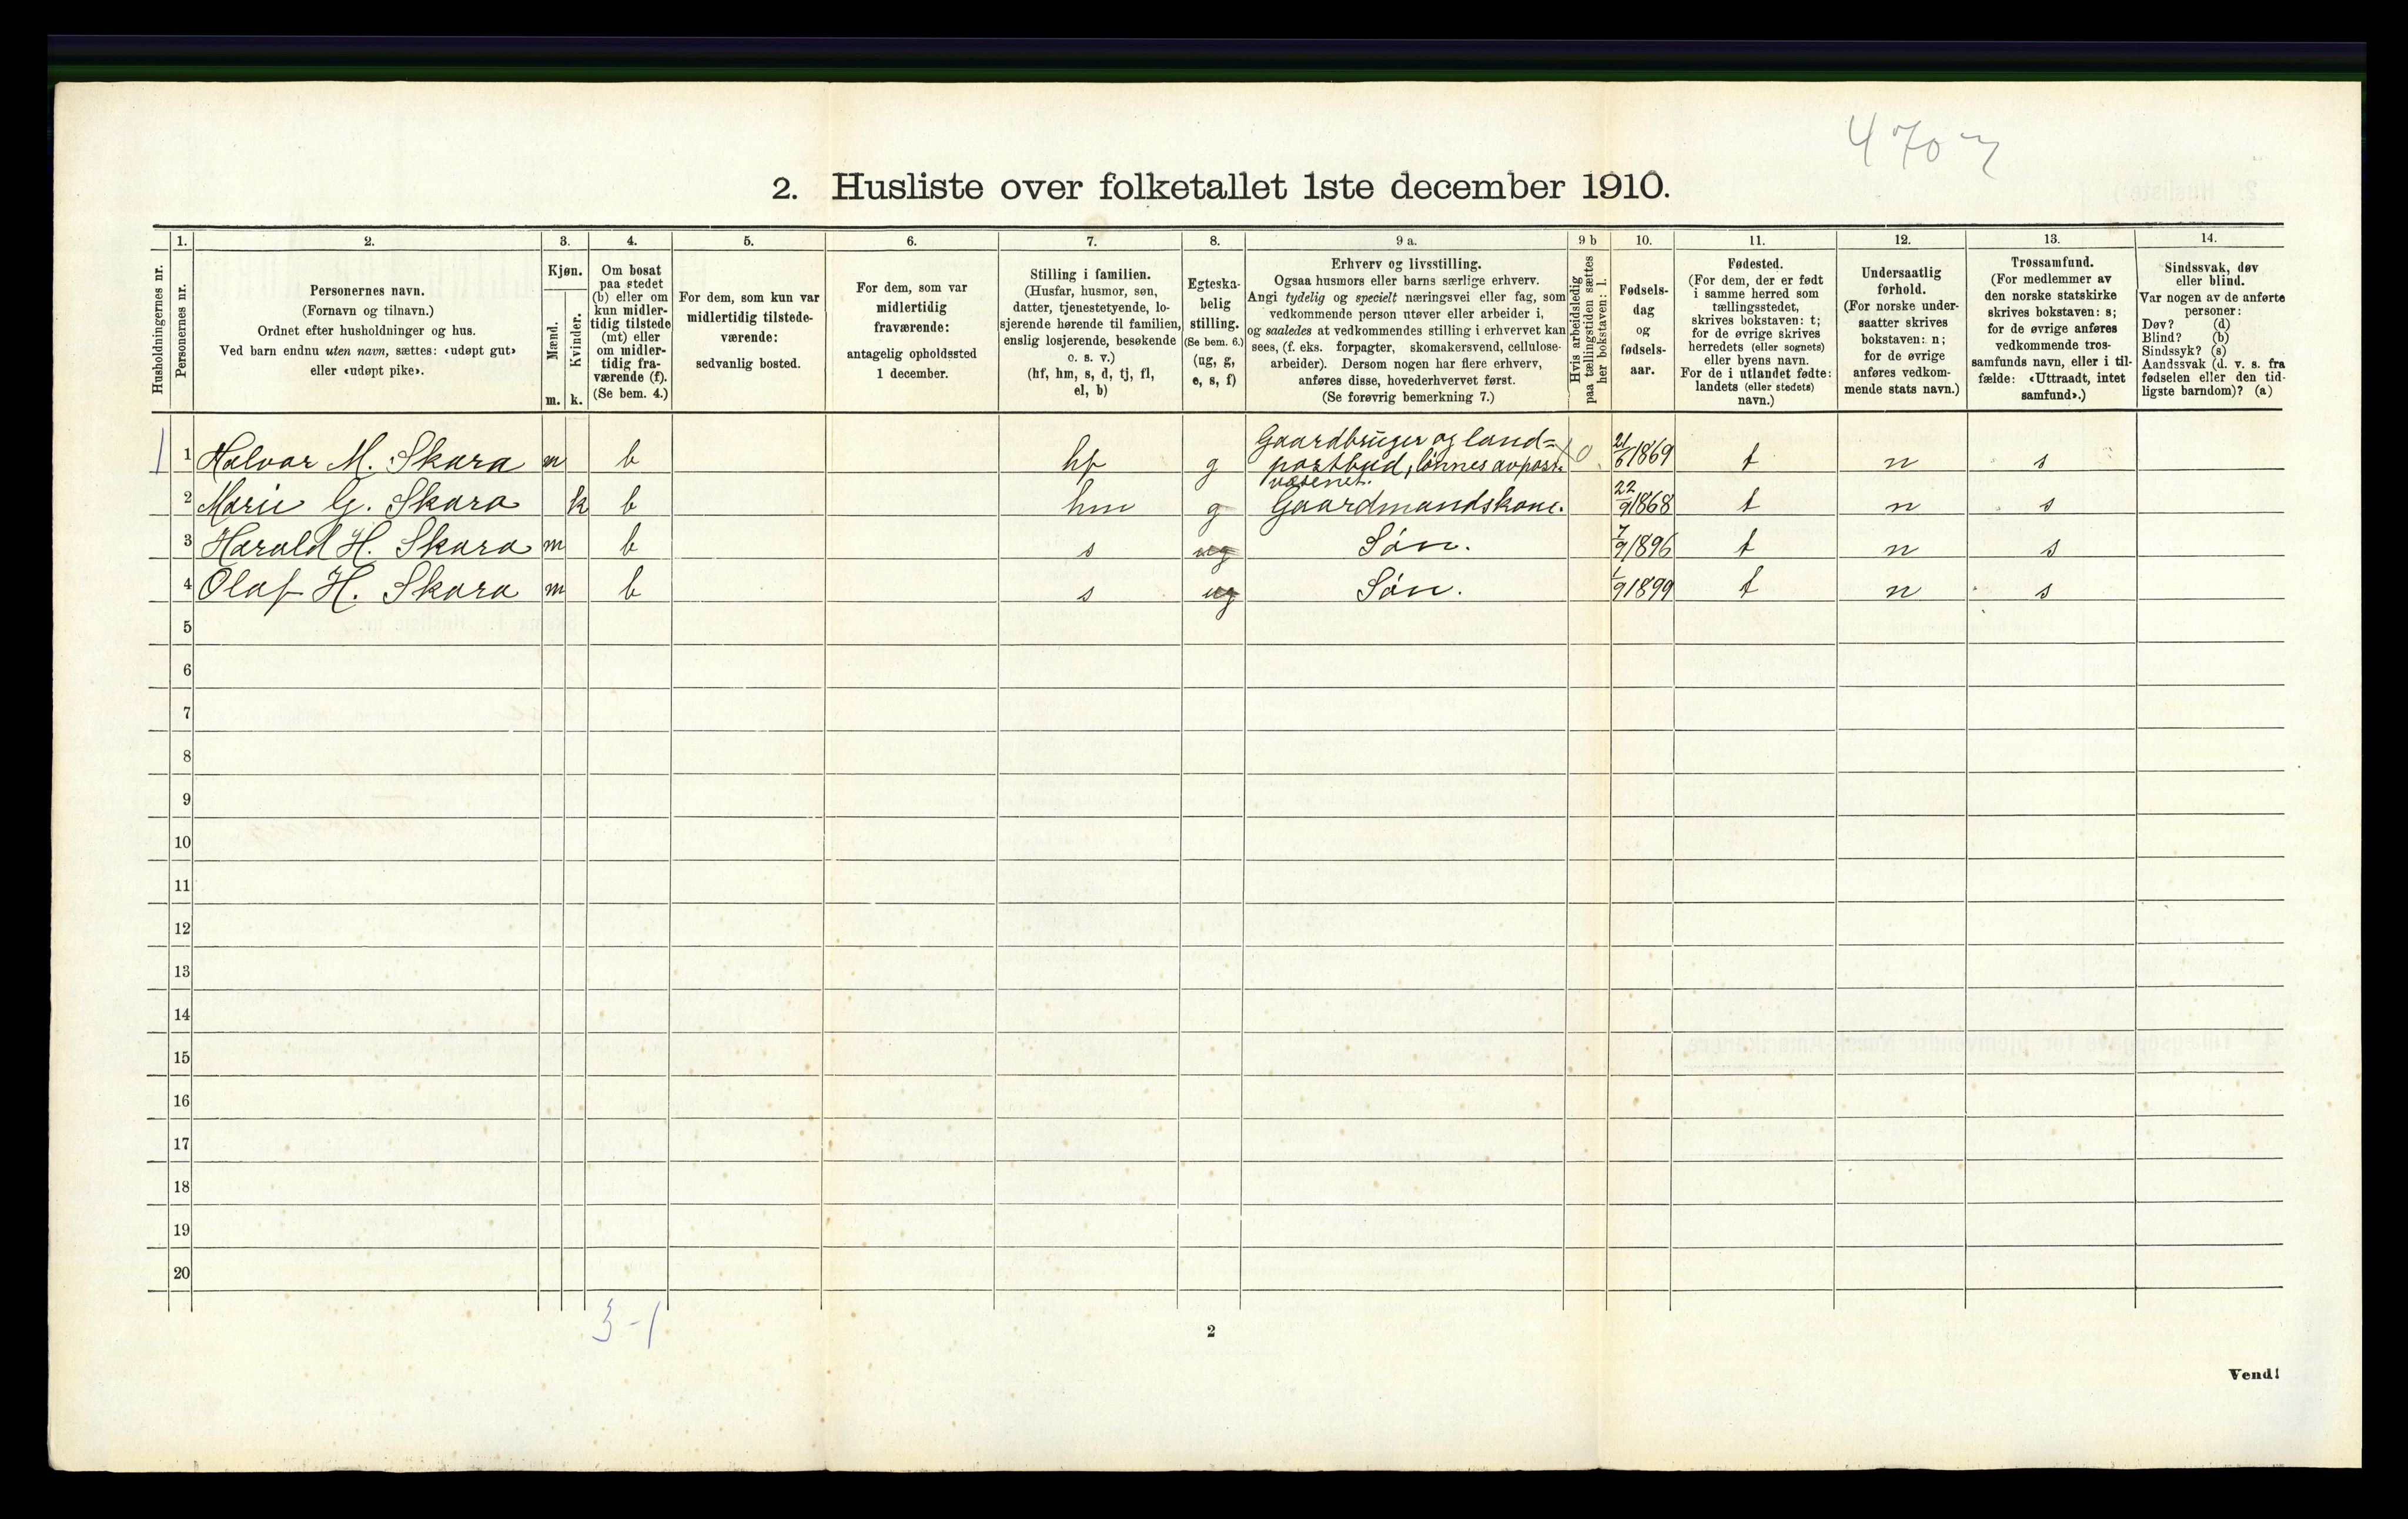 4707
2. Husliste over folketallet 1ste december 1910.
Husholdningernes nr.
1.
Personernes nr.
2.
Personernes navn.
(Fornavn og tilnavn.)
Ordnet efter husholdninger og hus.
Ved barn endnu uten navn, sættes: «udøpt gut»
eller «udøpt pike».
3.
Kjøn.
Mænd.
m.
Kvinder.
k.
4.
Om bosat
paa stedet
(b) eller om
kun midler-
tidig tilstede
(mt) eller
om midler-
tidig fra-
værende (f).
(Se bem. 4.)
5.
For dem, som kun var
midlertidig tilstede-
værende:
sedvanlig bosted.
6.
For dem, som var
midlertidig
fraværende:
antagelig opholdssted
1 december.
7.
Stilling i familien.
(Husfar, husmor, søn,
datter, tjenestetyende, lo-
sjerende hørende til familien,
enslig losjerende, besøkende
o. s. v.)
(hf, hm, s, d, tj, fl,
el, b)
8.
Egteska-
belig
stilling.
(Se bem. 6.)
(ug, g,
e, s, f)
9 a.
Erhverv og livsstilling.
Ogsaa husmors eller barns særlige erhverv.
Angi tydelig og specielt næringsvei eller fag, som
vedkommende person utøver eller arbeider i,
og saaledes at vedkommendes stilling i erhvervet kan
sees, (f. eks. forpagter, skomakersvend, cellulose-
arbeider). Dersom nogen har flere erhverv,
anføres disse, hovederhvervet først.
(Se forøvrig bemerkning 7.)
9 b
Hvis arbeidsledig
paa tællingstiden sættes
her bokstaven: l.
10.
Fødsels-
dag
og
fødsels-
aar.
11.
Fødested.
(For dem, der er født
i samme herred som
tællingsstedet,
skrives bokstaven: t;
for de øvrige skrives
herredets (eller sognets)
eller byens navn.
For de i utlandet fødte:
landets (eller stedets)
navn.)
12.
Undersaatlig
forhold.
(For norske under-
saatter skrives
bokstaven: n;
for de øvrige
anføres vedkom-
mende stats navn.)
13.
Trossamfund.
(For medlemmer av
den norske statskirke
skrives bokstaven: s;
for de øvrige anføres
vedkommende tros-
samfunds navn, eller i til-
fælde: «Uttraadt, intet
samfund».)
14.
Sindssvak, døv
eller blind.
Var nogen av de anførte
personer:
Døv? (d)
Blind? (b)
Sindssyk? (s)
Aandssvak (d. v. s. fra
fødselen eller den tid-
ligste barndom)? (a)
1 1 Halvor M. Skara m b hf g Gaardbruger og land=
postbud, lønnes av post=
væsenet. X 0 21/6 1869 t n s
2 Marie G. Skara k b hm g Gaardmandskone. 22/9 1868 t n s
3 Harald H. Skara m b s ug Søn. 7/9 1896 t n s
4 Olaf H. Skara m b s ug Søn. 1/9 1899 t n s
5
6
7
8
9
10
11
12
13
14
15
16
17
18
19
20
3-1
2
Vend!